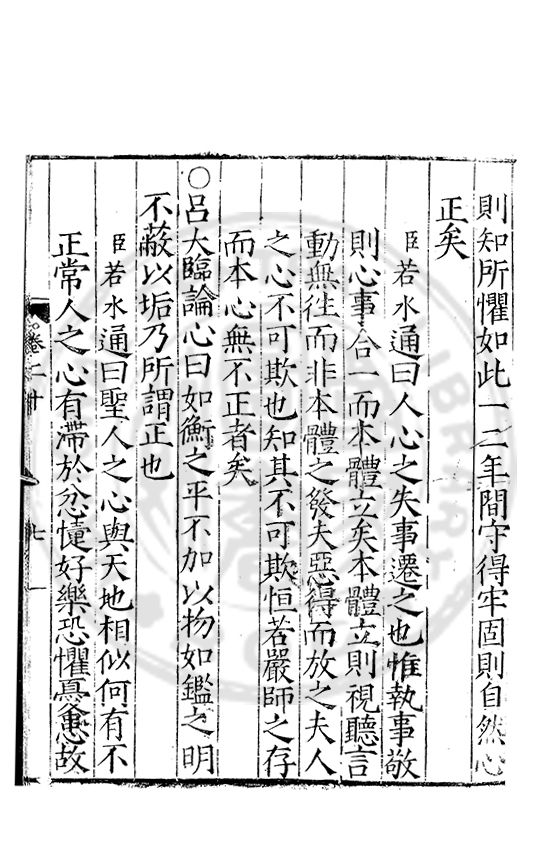 則知所懼如此一二年間守得牢固則自然心
正矣
臣若水通曰人心之失事遷之也惟執事敬
則心事合一而本體立矣本體立則視聽言
動無往而非本體之發夫惡得而放之夫人
之心不可欺也知其不可欺恒若嚴師之存
而本心無不正者矣
○呂大臨論心曰如衡之平不加以物如鑑之明
不蔽以垢乃所謂正也
臣若水通曰聖人之心與天地相似何有不
正常人之心有滯於忿懥好樂恐懼憂患故
卷二十
七